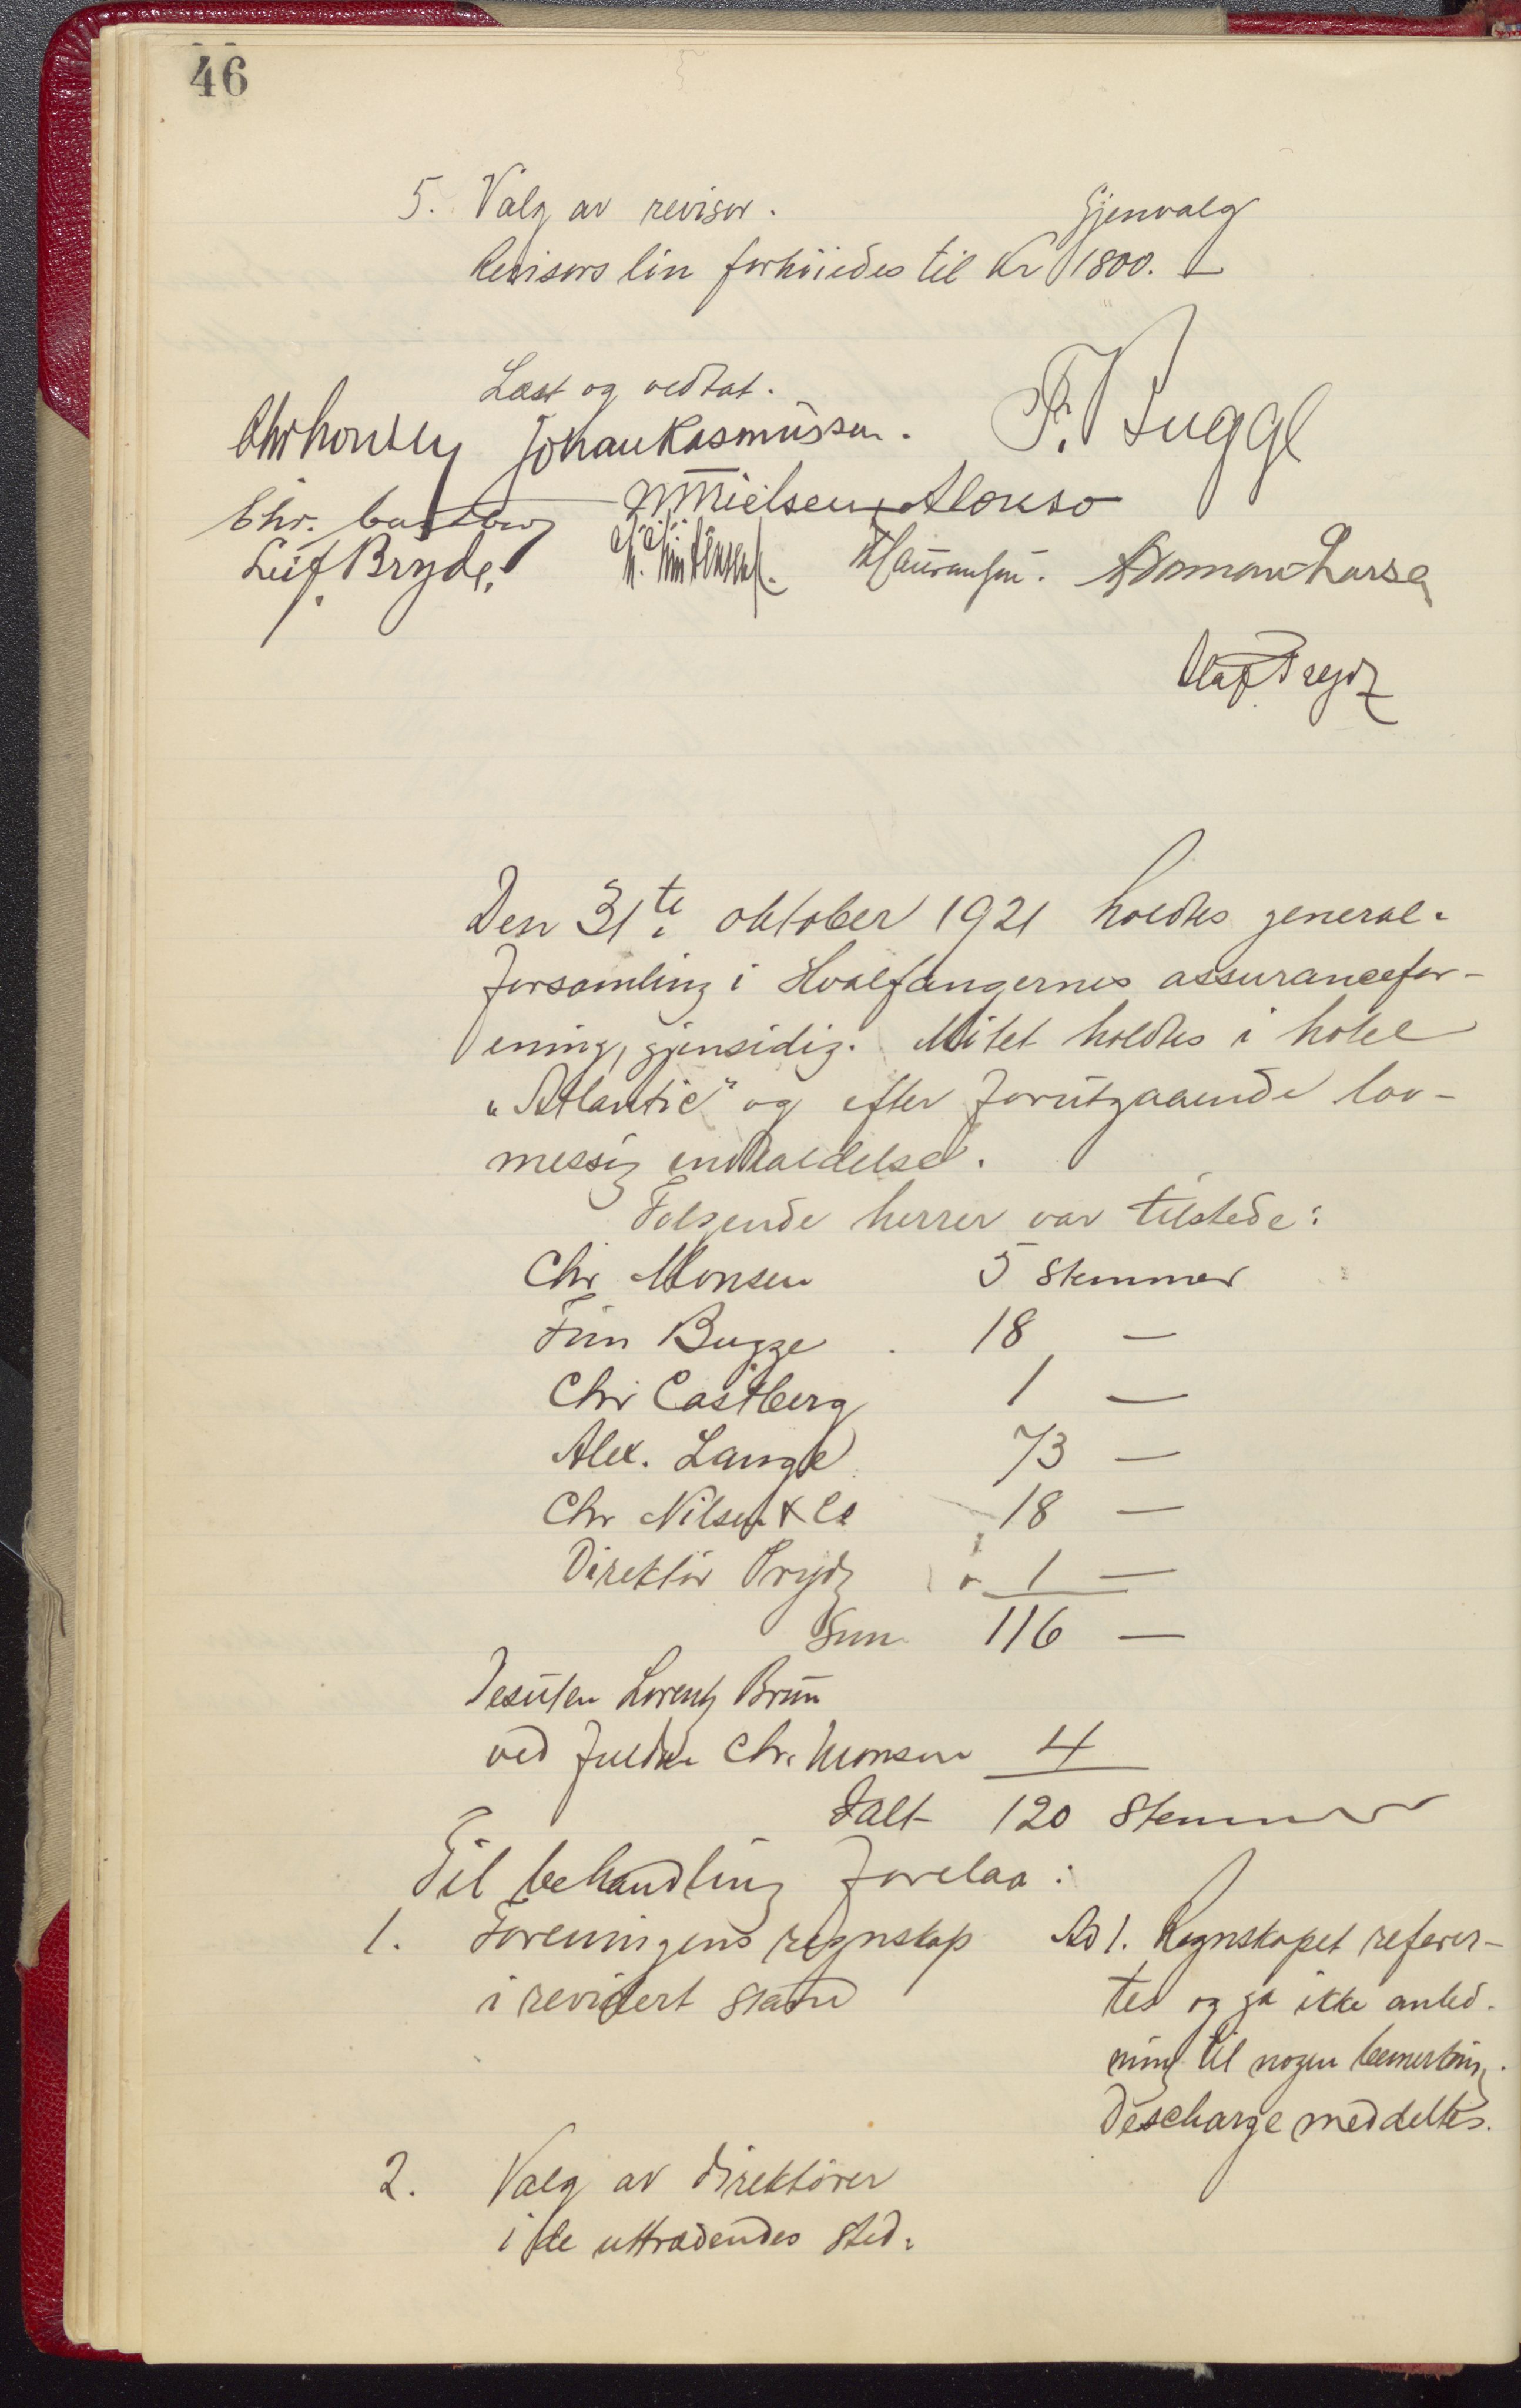 46
5. Valg av revisor. Gjenvalg
Revisors lön forhöiedes til Kr 1800.-
Læst og vedtat.
Chr Monsen Johan Rasmussen. F. Bugge
Chr. Castberg N Nielsen-Alonso
Leif Bryde. Lauransen. Adamow Larsen
Olaf Prydz
Den 31te oktober 1921 holdtes general-
forsamling i Hvalfangernes assurancefor-
ening, gjensidig. Mötet holdtes i hotel
"Atlantic" og efter forutgaaende lov-
messig indkaldelse.
Følgende herrer var tilstede:
Chr Monsen 5 Stemmer
Finn Bugge 18 —
Chr Castberg 1 —
Alex. Lange 73 —
Chr Nilsen & Co 18 —
Direktör Prydz 1 —
Sum 116 —
Desuten Lorentz Bruun
ved fuldm Chr. Monsen 4
Ialt 120 Stemmer
Til behandling forelaa:
1. Foreningens regnskap Ad 1. Regnskapet referer-
i revidert stand tes og ga ikke anled-
ning til nogen bemerkning.
Descharge meddeltes.
2. Valg av direktörer
i de uttrædendes sted.